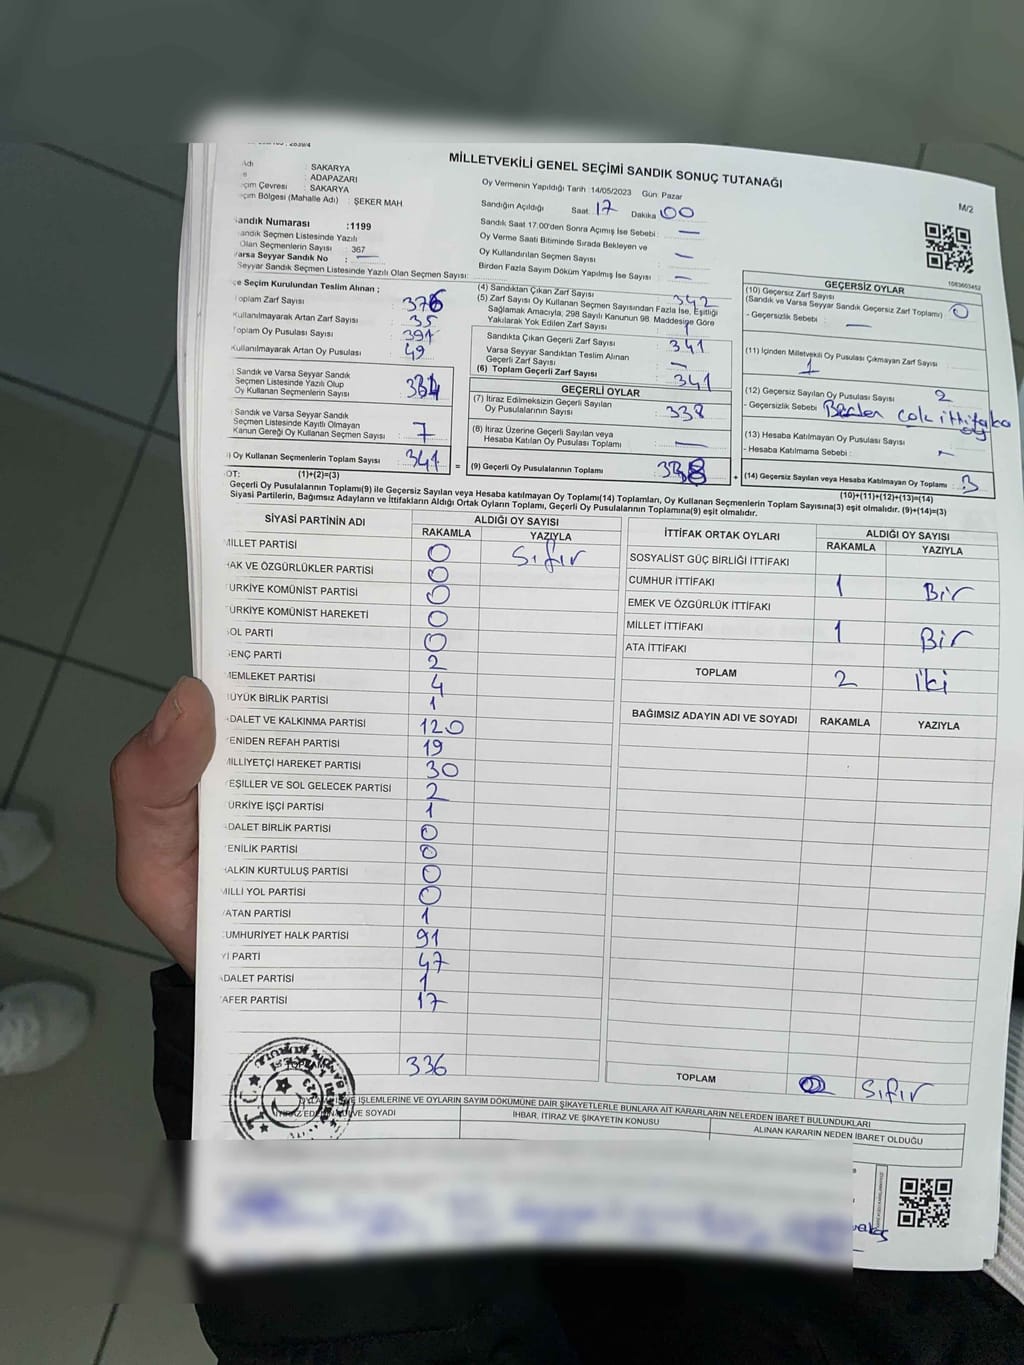 MİLLETVEKİLİ GENEL SEÇİMİ SANDIK SONUÇ TUTANAĞI
M/2
: SAKARYA
: ADAPAZARI
çim Çevresi : SAKARYA
çim Bölgesi (Mahalle Adı) : ŞEKER MAH
andık Numarası :1199
andık Seçmen Listesinde Yazılı
Olan Seçmenlerin Sayısı : 367
Varsa Seyyar Sandık No : —
Seyyar Sandık Seçmen Listesinde Yazılı Olan Seçmen Sayısı:
Oy Vermenin Yapıldığı Tarih :14/05/2023 Gün: Pazar
Sandığın Açıldığı Saat: 17 Dakika: 00
Sandık Saat 17.00'den Sonra Açımış İse Sebebi : —
Oy Verme Saati Bitiminde Sırada Bekleyen ve
Oy Kullandırılan Seçmen Sayısı : —
Birden Fazla Sayım Döküm Yapılmış İse Sayısı : —
1083603452
çe Seçim Kurulundan Teslim Alınan ;
Toplam Zarf Sayısı : 376
Kullanılmayarak Artan Zarf Sayısı : 35
Toplam Oy Pusulası Sayısı : 391
Kullanılmayarak Artan Oy Pusulası : 49
Sandık ve Varsa Seyyar Sandık
Seçmen Listesinde Yazılı Olup
Oy Kullanan Seçmenlerin Sayısı : 334
Sandık ve Varsa Seyyar Sandık
Seçmen Listesinde Kayıtlı Olmayan
Kanun Gereği Oy Kullanan Seçmen Sayısı : 7
) Oy Kullanan Seçmenlerin Toplam Sayısı : 341
(1)+(2)=(3)
(4) Sandıktan Çıkan Zarf Sayısı : 342
(5) Zarf Sayısı Oy Kullanan Seçmen Sayısından Fazla İse, Eşitliği
Sağlamak Amacıyla, 298 Sayılı Kanunun 98. Maddesine Göre
Yakılarak Yok Edilen Zarf Sayısı : 1
Sandıkta Çıkan Geçerli Zarf Sayısı : 341
Varsa Seyyar Sandıktan Teslim Alınan
Geçerli Zarf Sayısı : —
(6) Toplam Geçerli Zarf Sayısı : 341
GEÇERLİ OYLAR
(7) İtiraz Edilmeksizin Geçerli Sayılan
Oy Pusulalarının Sayısı : 338
(8) İtiraz Üzerine Geçerli Sayılan veya
Hesaba Katılan Oy Pusulası Toplamı : —
= (9) Geçerli Oy Pusulalarının Toplamı : 338 +
GEÇERSİZ OYLAR
(10) Geçersiz Zarf Sayısı
(Sandık ve Varsa Seyyar Sandık Geçersiz Zarf Toplamı) : 0
- Geçersizlik Sebebi : —
(11) İçinden Milletvekili Oy Pusulası Çıkmayan Zarf Sayısı : 1
(12) Geçersiz Sayılan Oy Pusulası Sayısı : 2
- Geçersizlik Sebebi : Birden çok ittifaka oy
(13) Hesaba Katılmayan Oy Pusulası Sayısı :
- Hesaba Katılmama Sebebi : —
(14) Geçersiz Sayılan veya Hesaba Katılmayan Oy Toplamı : 3
(10)+(11)+(12)+(13)=(14)
OT:
Geçerli Oy Pusulalarının Toplamı(9) ile Geçersiz Sayılan veya Hesaba katılmayan Oy Toplamı(14) Toplamları, Oy Kullanan Seçmenlerin Toplam Sayısına(3) eşit olmalıdır. (9)+(14)=(3)
Siyasi Partilerin, Bağımsız Adayların ve İttifakların Aldığı Ortak Oyların Toplamı, Geçerli Oy Pusulalarının Toplamına(9) eşit olmalıdır.
SİYASİ PARTİNİN ADI ALDIĞI OY SAYISI
RAKAMLA YAZIYLA
MİLLET PARTİSİ 0 Sıfır
HAK VE ÖZGÜRLÜKLER PARTİSİ 0
TÜRKİYE KOMÜNİST PARTİSİ 0
TÜRKİYE KOMÜNİST HAREKETİ 0
SOL PARTİ 0
GENÇ PARTİ 2
MEMLEKET PARTİSİ 4
BÜYÜK BİRLİK PARTİSİ 1
ADALET VE KALKINMA PARTİSİ 120
YENİDEN REFAH PARTİSİ 19
MİLLİYETÇİ HAREKET PARTİSİ 30
YEŞİLLER VE SOL GELECEK PARTİSİ 2
TÜRKİYE İŞÇİ PARTİSİ 1
ADALET BİRLİK PARTİSİ 0
YENİLİK PARTİSİ 0
HALKIN KURTULUŞ PARTİSİ 0
MİLLİ YOL PARTİSİ 0
VATAN PARTİSİ 1
CUMHURİYET HALK PARTİSİ 91
İYİ PARTİ 47
ADALET PARTİSİ 1
ZAFER PARTİSİ 17
TOPLAM 336
İTTİFAK ORTAK OYLARI ALDIĞI OY SAYISI
RAKAMLA YAZIYLA
SOSYALİST GÜÇ BİRLİĞİ İTTİFAKI
CUMHUR İTTİFAKI 1 Bir
EMEK VE ÖZGÜRLÜK İTTİFAKI
MİLLET İTTİFAKI 1 Bir
ATA İTTİFAKI
TOPLAM 2 iki
BAĞIMSIZ ADAYIN ADI VE SOYADI RAKAMLA YAZIYLA
TOPLAM 0 Sıfır
İŞLEMLERİNE VE OYLARIN SAYIM DÖKÜMÜNE DAİR ŞİKAYETLERLE BUNLARA AİT KARARLARIN NELERDEN İBARET BULUNDUKLARI
İTİRAZ EDENİN ADI VE SOYADI İHBAR, İTİRAZ VE ŞİKAYETİN KONUSU ALINAN KARARIN NEDEN İBARET OLDUĞU